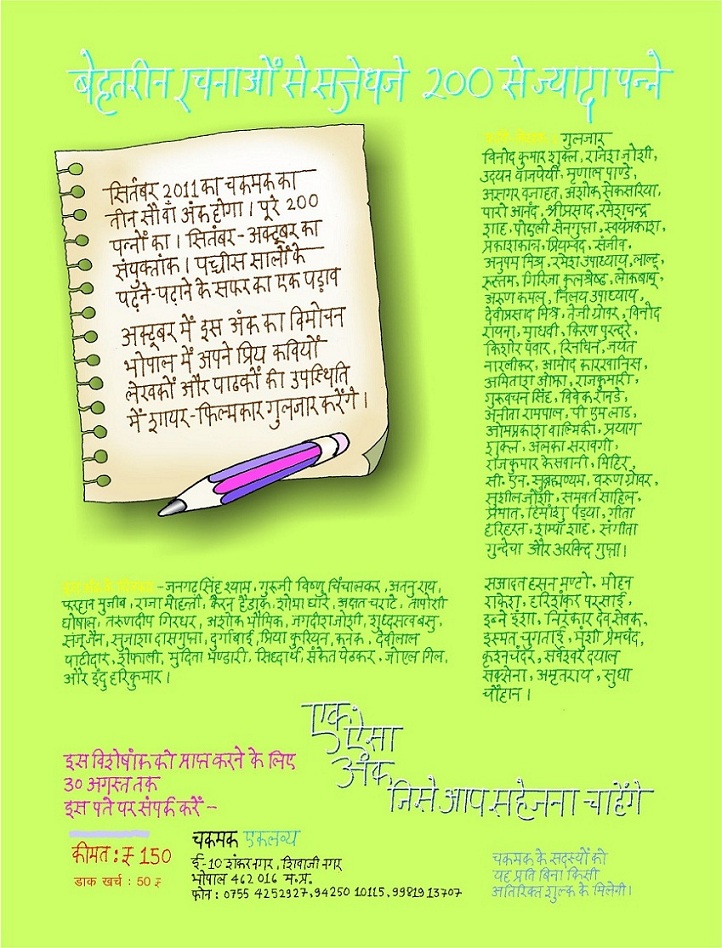 बेहतरीन रचनाओं से सजेधजे 200 से ज्यादा पन्ने
सितंबर 2011 का चकमक का
तीन सौवाँ अंक होगा। पूरे 200
पन्नों का। सितंबर-अक्टूबर का
संयुक्तांक। पच्चीस सालों के
पढ़ने-पढ़ाने के सफर का एक पड़ाव
अक्टूबर में इस अंक का विमोचन
भोपाल में अपने प्रिय कवियों
लेखकों और पाठकों की उपस्थिति
में शायर-फिल्मकार गुलज़ार करेंगे।
गुलज़ार
विनोद कुमार शुक्ल, राजेश जोशी,
उदयन वाजपेयी, मृणाल पाण्डे,
असगर वजाहत, अशोक सेकसरिया,
पारो आनंद, श्रीप्रसाद, रमेशचन्द्र
शाह, पोइली सेनगुप्ता, स्वयंप्रकाश,
प्रकाशकान्त, प्रियंवद, संजीव,
अनुपम मिश्र, रमेश उपाध्याय, लाल्टू,
रुस्तम, गिरिजा कुलश्रेष्ठ, लोकबाबू,
अरुण कमल, निलय उपाध्याय,
देवीप्रसाद मिश्र, तेजी ग्रोवर, विनोद
रायना, माधवी, किरण पुरन्दरे,
किशोर पंवार, रिनचिन, जयंत
नारलीकर, आमोद कारखानिस,
अमिताश ओझा, राजकुमारी,
गुरबचन सिंह, विवेक रानडे,
अनीता रामपाल, पी एम लाड,
ओमप्रकाश वाल्मिकी, प्रयाग
शुक्ल, अलका सरावगी,
राजकुमार केसवानी, मिहिर,
सी. एन. सुब्रह्मण्यम, वरुण ग्रोवर,
सुशील जोशी, समवर्त साहिल,
प्रभात, हिमांशु पंड्या, गीता
हरिहरन, शम्पा शाह, संगीता
गुन्देचा और अरविन्द गुप्ता।
सआदत हसन मण्टो, मोहन
राकेश, हरिशंकर परसाई,
इब्ने इंशा, निरंकार देव सेवक,
इस्मत चुगताई, मुंशी प्रेमचंद,
कृश्नचंदर, सर्वेश्वर दयाल
सक्सेना, अमृतराय, सुधा
चौहान।
-जनगढ़ सिंह श्याम, गुरुजी विष्णु चिंचालकर, अतनु राय,
मुजीब, राजा मोहन्ती, कैरन हैडॉक, शोभा घारे, अक्षत चराटे, तापोशी
घोषाल, तरुणदीप गिरधर, अशोक भौमिक, जगदीश जोशी, शुध्दसत्व बसु,
सुजाशा दासगुप्ता, दुर्गाबाई, प्रिया कुरियन, कनक, देवीलाल
पाटीदार, शेफाली, मुदिता भण्डारी, सिध्दार्थ, संकेत पेठकर, जोएल गिल,
और इंदु हरिकुमार।
एक
ऐसा
अंक
जिसे आप सहेजना चाहेंगे
इस विशेषांक को प्राप्त करने के लिए
30 अगस्त तक
इस पते पर संपर्क करें-
कीमत: ₹ 150
डाक खर्च : 50 ₹
चकमक एकलव्य
ई-10 शंकर नगर, शिवाजी नगर
भोपाल 462 016 म.प्र.
फोन: 0755 4252927, 94250 10115, 99819 13707
चकमक के सदस्यों को
यह प्रति बिना किसी
अतिरिक्त शुल्क के मिलेगी।